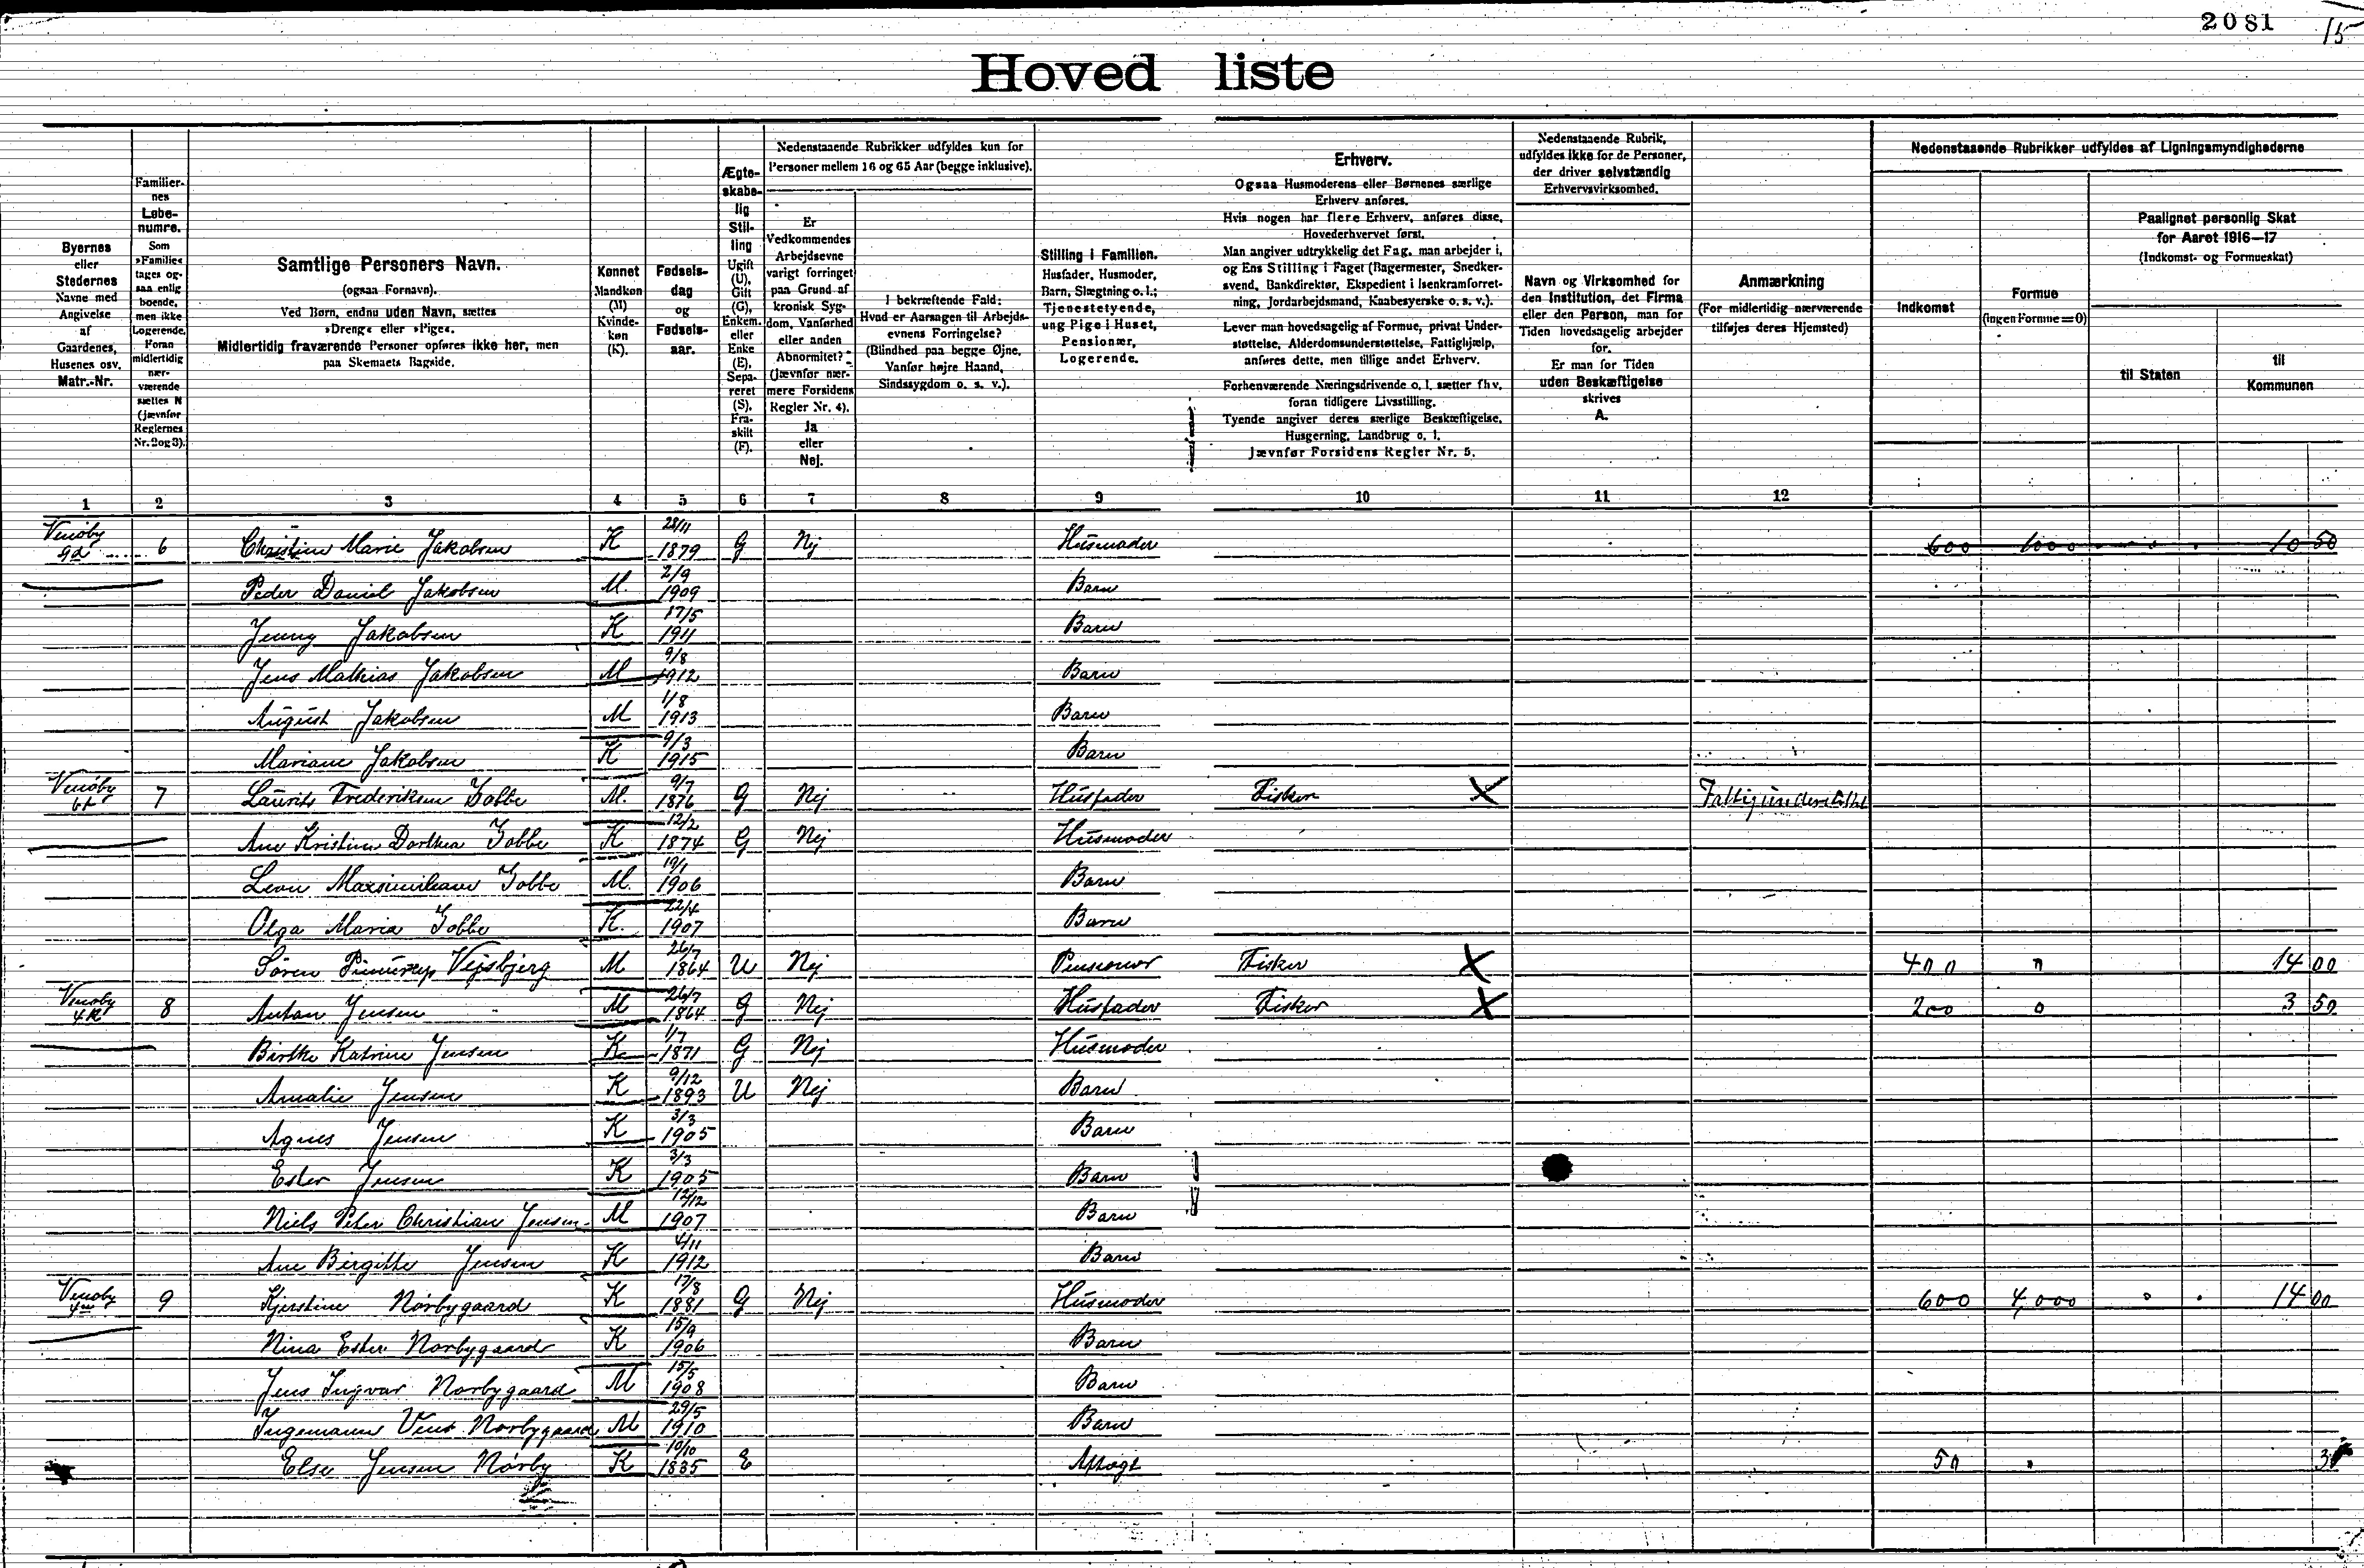 2081
15
Hoved liste
Byernes eller Stedernes Navne med Angivelse af Gaardenes, Husenes osv. Matr.-Nr.
Familiernes Løbenumre. Som »Familie« tages ogsaa enlig boende, men ikke Logerende. Foran midlertidig nærværende sættes N (jævnfør Reglernes Nr. 2 og 3).
Samtlige Personers Navn.
(ogsaa Fornavn).
Ved Børn, endnu uden Navn, sættes
»Dreng« eller »Pige«.
Midlertidig fraværende Personer opføres ikke her, men
paa Skemaets Bagside.
Kønnet Mandkøn (M) Kvindekøn (K).
Fødselsdag og Fødselsaar.
Ægteskabelig Stilling Ugift (U), Gift (G), Enkem. eller Enke (E), Separeret (S), Fraskilt (F).
Nedenstaaende Rubrikker udfyldes kun for
Personer mellem 16 og 65 Aar (begge inklusive).
Er Vedkommendes Arbejdsevne varigt forringet paa Grund af kronisk Sygdom, Vanførhed eller anden Abnormitet? (Jævnfør nærmere Forsidens Regler Nr. 4). Ja eller Nej.
I bekræftende Fald: Hvad er Aarsagen til Arbejdsevnens Forringelse? (Blindhed paa begge Øjne, Vanfør højre Haand, Sindssygdom o. s. v.).
Stilling i Familien.
Husfader, Husmoder, Barn, Slægtning o. l.; Tjenestetyende, ung Pige i Huset, Pensionær, Logerende.
Erhverv.
Ogsaa Husmoderens eller Børnenes særlige
Erhverv anføres.
Hvis nogen har flere Erhverv, anføres disse,
Hovederhvervet først.
Man angiver udtrykkelig det Fag, man arbejder i,
og Ens Stilling i Faget (Bagermester, Snedker-
svend, Bankdirektør, Ekspedient i Isenkramforret-
ning, Jordarbejdsmand, Kaabesyerske o. s. v.).
Lever man hovedsagelig af Formue, privat Under-
støttelse, Alderdomsunderstøttelse, Fattighjælp,
anføres dette, men tillige andet Erhverv.
Forhenværende Næringsdrivende o. l. sætter fhv.
foran tidligere Livsstilling.
Tyende angiver deres særlige Beskæftigelse,
Husgerning, Landbrug o. l.
Jævnfør Forsidens Regler Nr. 5.
Nedenstaaende Rubrik,
udfyldes ikke for de Personer,
der driver selvstændig
Erhvervsvirksomhed.
Navn og Virksomhed for
den Institution, det Firma
eller den Person, man for
Tiden hovedsagelig arbejder
for.
Er man for Tiden
uden Beskæftigelse
skrives
A.
Anmærkning
(For midlertidig nærværende
tilføjes deres Hjemsted)
Nedenstaaende Rubrikker udfyldes af Ligningsmyndighederne
Indkomst
Formue
(ingen Formue=0)
Paalignet personlig Skat
for Aaret 1916—17
(Indkomst- og Formueskat)
til Staten
til Kommunen
1 2 3 4 5 6 7 8 9 10 11 12
Venøby 6 Christine Marie Jakobsen K 28/11 1879 G Nej Husmoder 600 1000 10 50
Peder Daniel Jakobsen M. 2/9 1909 Barn
Jenny Jakobsen K 17/5 1911 Barn
Jens Mathias Jakobsen M 9/8 1912 Barn
August Jakobsen M 1/8 1913 Barn
Mariane Jakobsen K 9/3 1915 Barn
Venøby 7 Laurits Frederiksen Jobbe M. 9/7 1876 G Nej Husfader Fisker X
Ane Kristine Dorthea Jobbe K 12/2 1874 G Nej Husmoder
Leon Maximilian Jobbe M. 19/1 1906 Barn
Olga Maria Jobbe K. 22/4 1907 Barn
Søren Vejsbjerg M 26/7 1864 U Nej Pensionær Fisker X 400 " 14 00
Venøby 8 Anton Jensen M 26/7 1864 G Nej Husfader Fisker X 200 0 3 50
Birthe Katrine Jensen K 1/7 1871 G Nej Husmoder
Amalie Jensen K 9/12 1893 U Nej Barn
Agnes Jensen K 3/3 1905 Barn
Ester Jensen K 3/3 1905 Barn
Niels Peter Christian Jensen M 12/12 1907 Barn
Ane Birgitte Jensen K 4/11 1912 Barn
Venøby 9 Kjerstine Nørbygaard K 17/8 1881 G Nej Husmoder 600 4000 14 00
Nina Ester Nørbygaard K 15/9 1906 Barn
Jens Ingvar Nørbygaard M 15/5 1908 Barn
Ingemann Nørbygaard M 29/5 1910 Barn
Else Jensen Nørby K 10/10 1835 E Aftægt 50 "